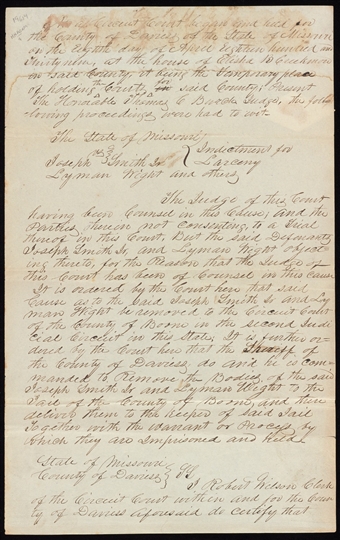 At a Circuit Court began and held for
the County of Daviess, of the State of Missouri
on the eighth day of April Eighteen hundred and
thirty nine, at the house of Elisha B Creekmore
in said County, it being the Temporary place
of holding Courts for said County; Present
The Honorable Thomas C Burch Judge, the foll-
owing proceedings were had to wit
The State of Missouri
vs
Joseph Smith Jr
Lyman Wight and others
Indictment for
Larceny
The Judge of this Court
having been Counsel in this Cause, and the
Parties therein not consenting, to a Trial
thereof in this Court, But the said Defendants
Joseph Smith Jr, and Lyman Wight objecting
thereto, for the Reason that the Judge of
this Court has been of Counsel in this Cause
It is ordered by the Court here that said
Cause as to the Said Joseph Smith Jr and Ly-
man Wight be removed to the Circuit Court
of the County of Boone in the second Judi-
cial Circuit in this State, It is further or-
dered by the Court here that the Sheriff of
the County of Daviess do and he is com-
manded to Remove the Bodies of the said
Joseph Smith Jr and Lyman Wight to the
Jail of the County of Boone, and then
deliver them to the keeper of Said Jail
Together with the warrant or Process by
which they are Imprisoned and held
State of Missouri
County of Daviess
I Robert Wilson Clerk
of the Circuit Court within and for the Coun-
ty of Daviess aforesaid do certify that